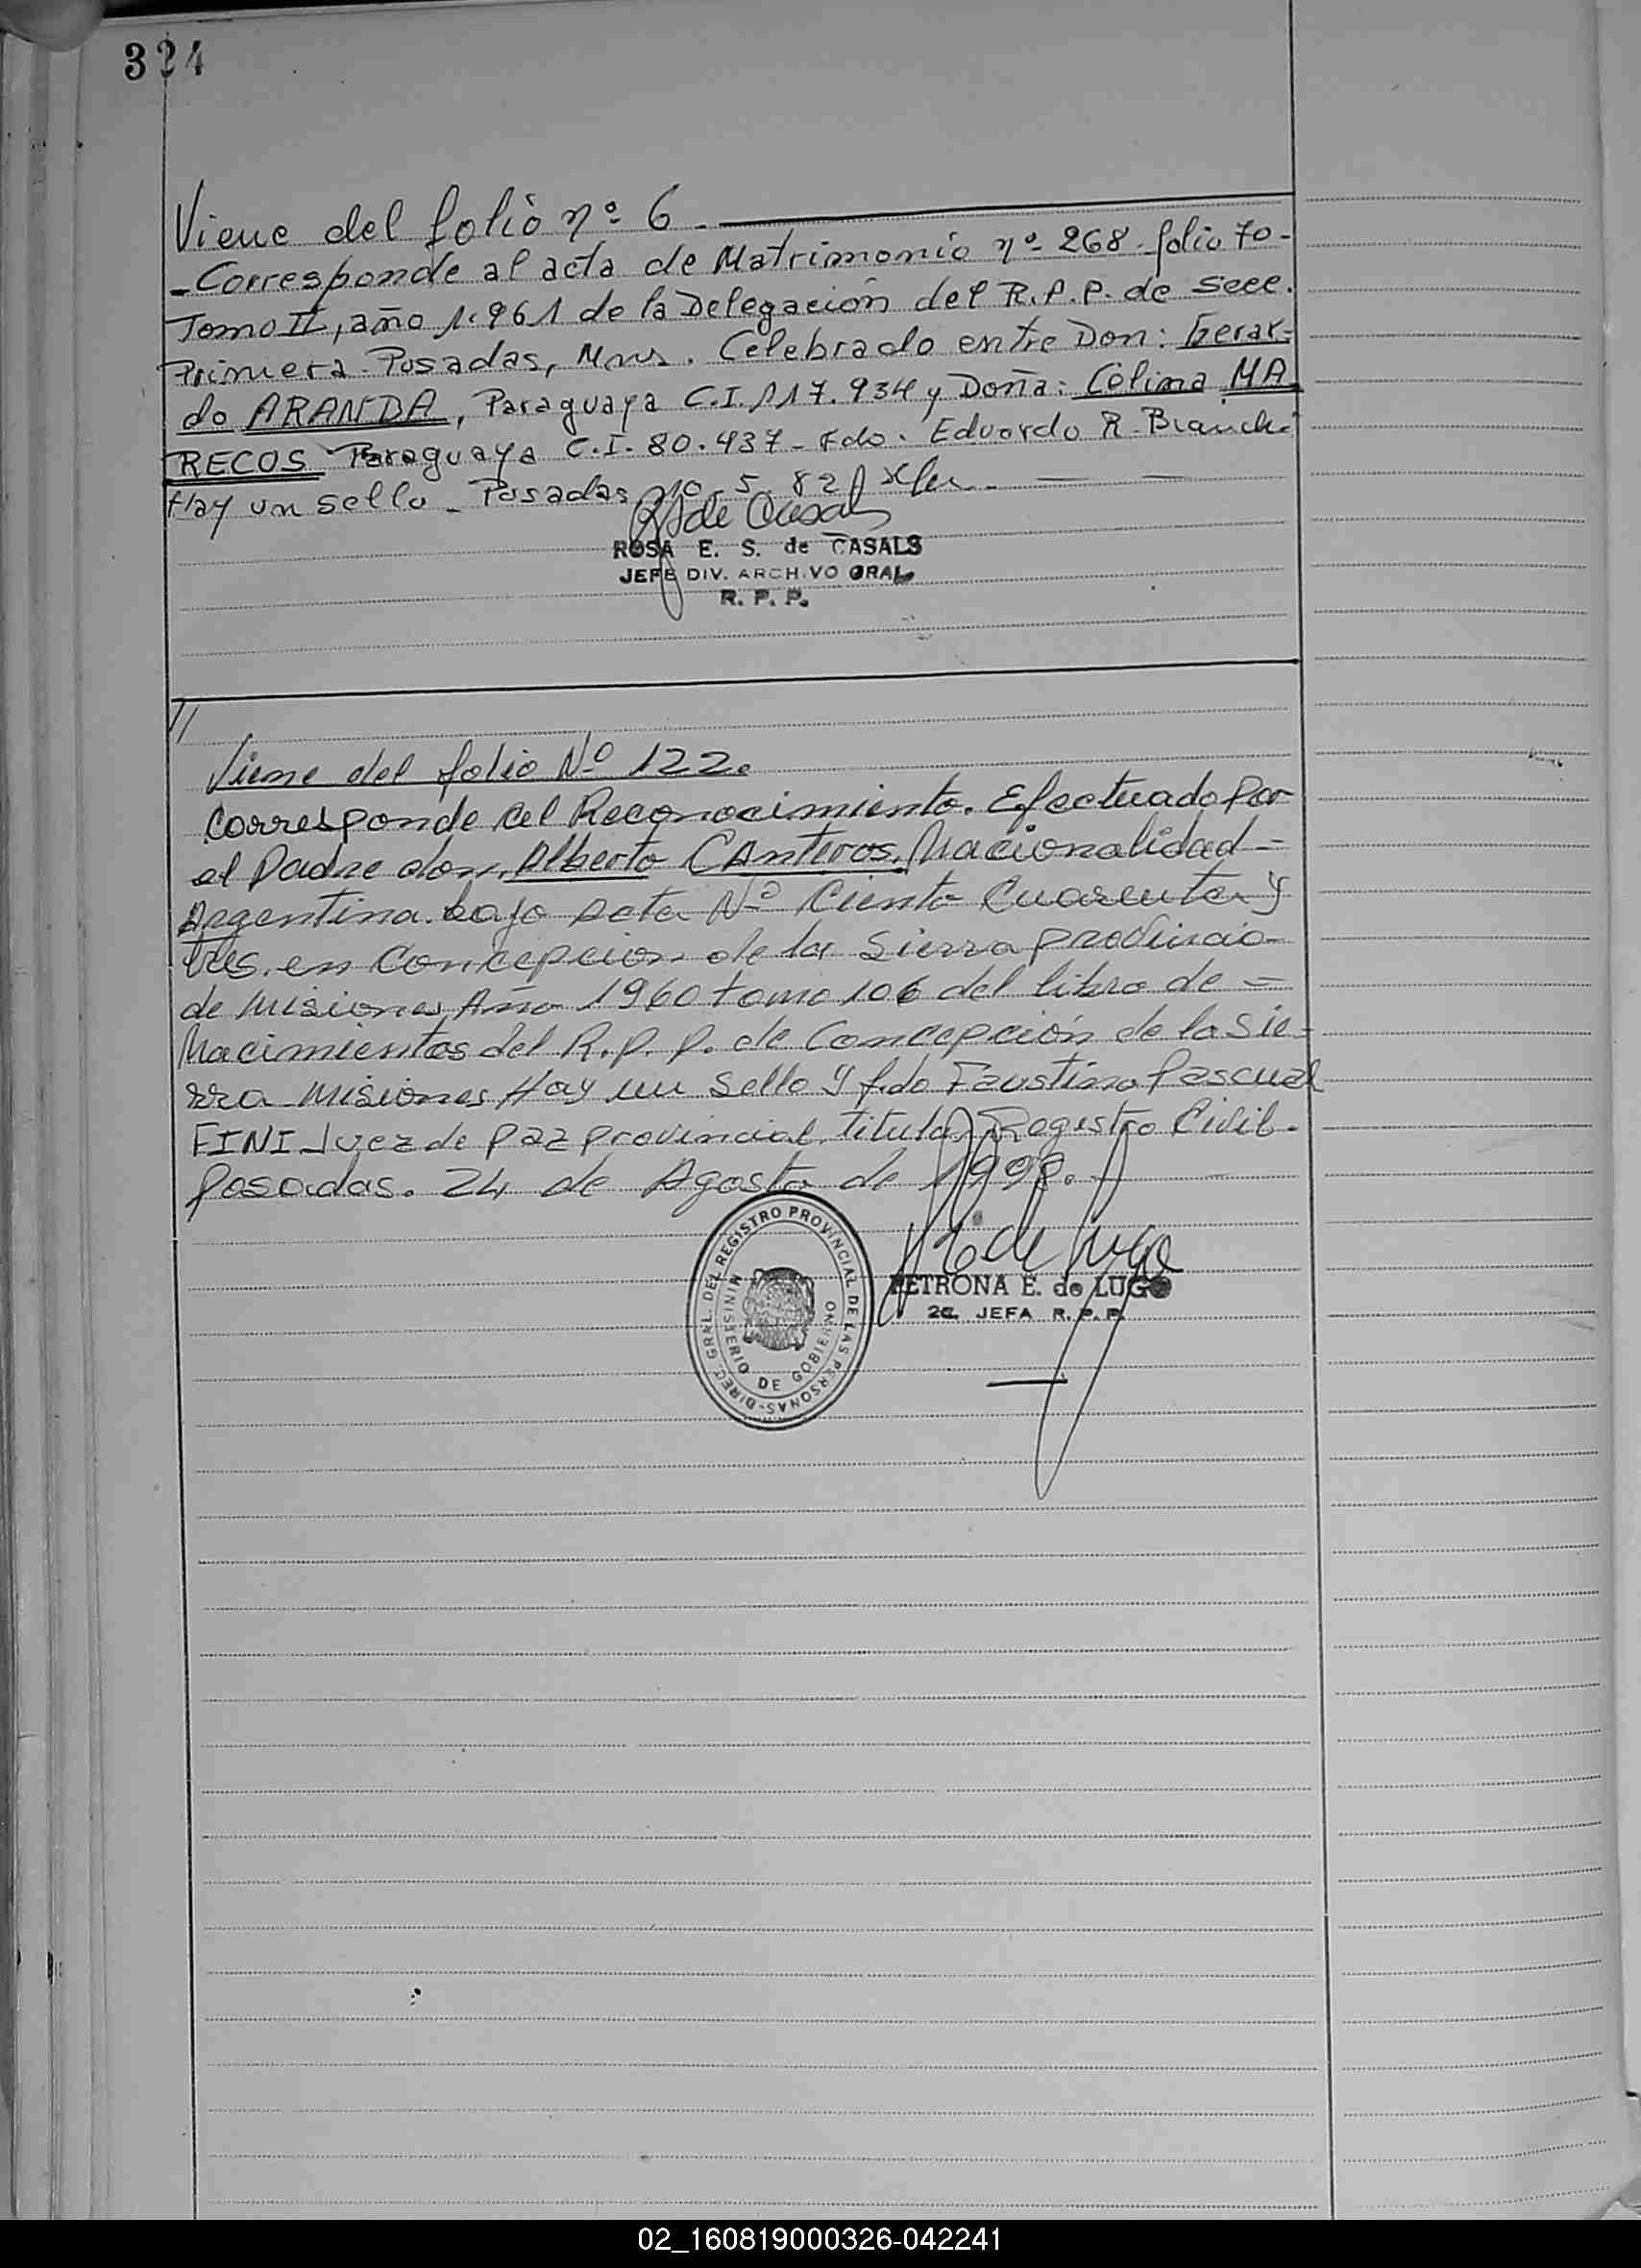 324
Viene del folio nº 6.
-Corresponde al acta de Matrimonio nº 268 - folio 70 -
Tomo II, año 1.961 de la Delegación del R.P.P. de Secc.
Primera - Posadas, Mns. Celebrado entre Don: Gerar=
do ARANDA, Paraguaya C.I. 117.934 y Doña: Celima MA
RECOS Paraguaya C.I. 80.437 - Fdo. Eduardo R. Bianchi
Hay un sello - Posadas, 10.5.82
R S de Casals
ROSA E. S. de CASALS
JEFE DIV. ARCHIVO GRAL
R. P. P.
//
Viene del folio Nº 122.
Corresponde al Reconocimiento. Efectuado Por
el Padre don, Alberto CAnteros, Nacionalidad =
Argentina. bajo Acta Nº Ciento Cuarenta y
tres, en Concepcion de la Sierra provincia
de Misiones, Año 1960 tomo 106 del libro de =
Nacimientos del R. p. p. de Concepción de la Sie-
rra Misiones Hay un Sello y fdo Faustino Pascual
FINI Juez de paz provincial, titular, Registro Civil.
Posadas. 24 de Agosto de 1998.
DIREC. GRAL. DEL REGISTRO PROVINCIAL DE LAS PERSONAS-
MINISTERIO DE GOBIERNO
de Lugo
PETRONA E. de LUGO
2a. JEFA R. P. P.
02_160819000326-042241